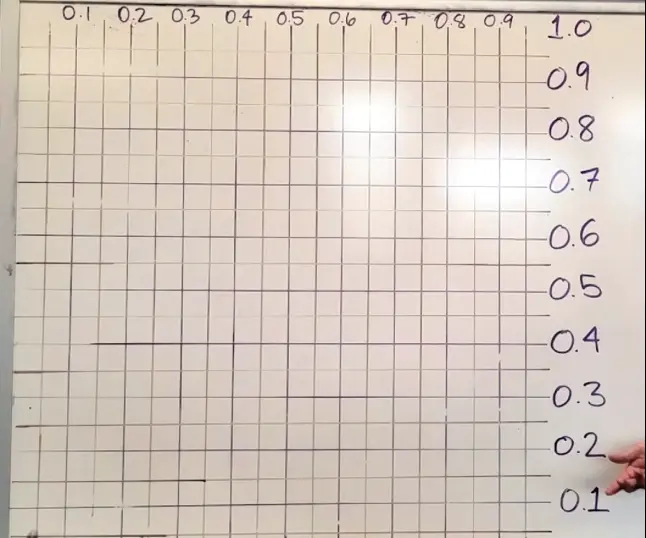 0.1 0.2 0.3 0.4 0.5 0.6 0.7 0.8 0.9
1.0
0.9
0.8
0.7
0.6
0.5
0.4
0.3
0.2
0.1